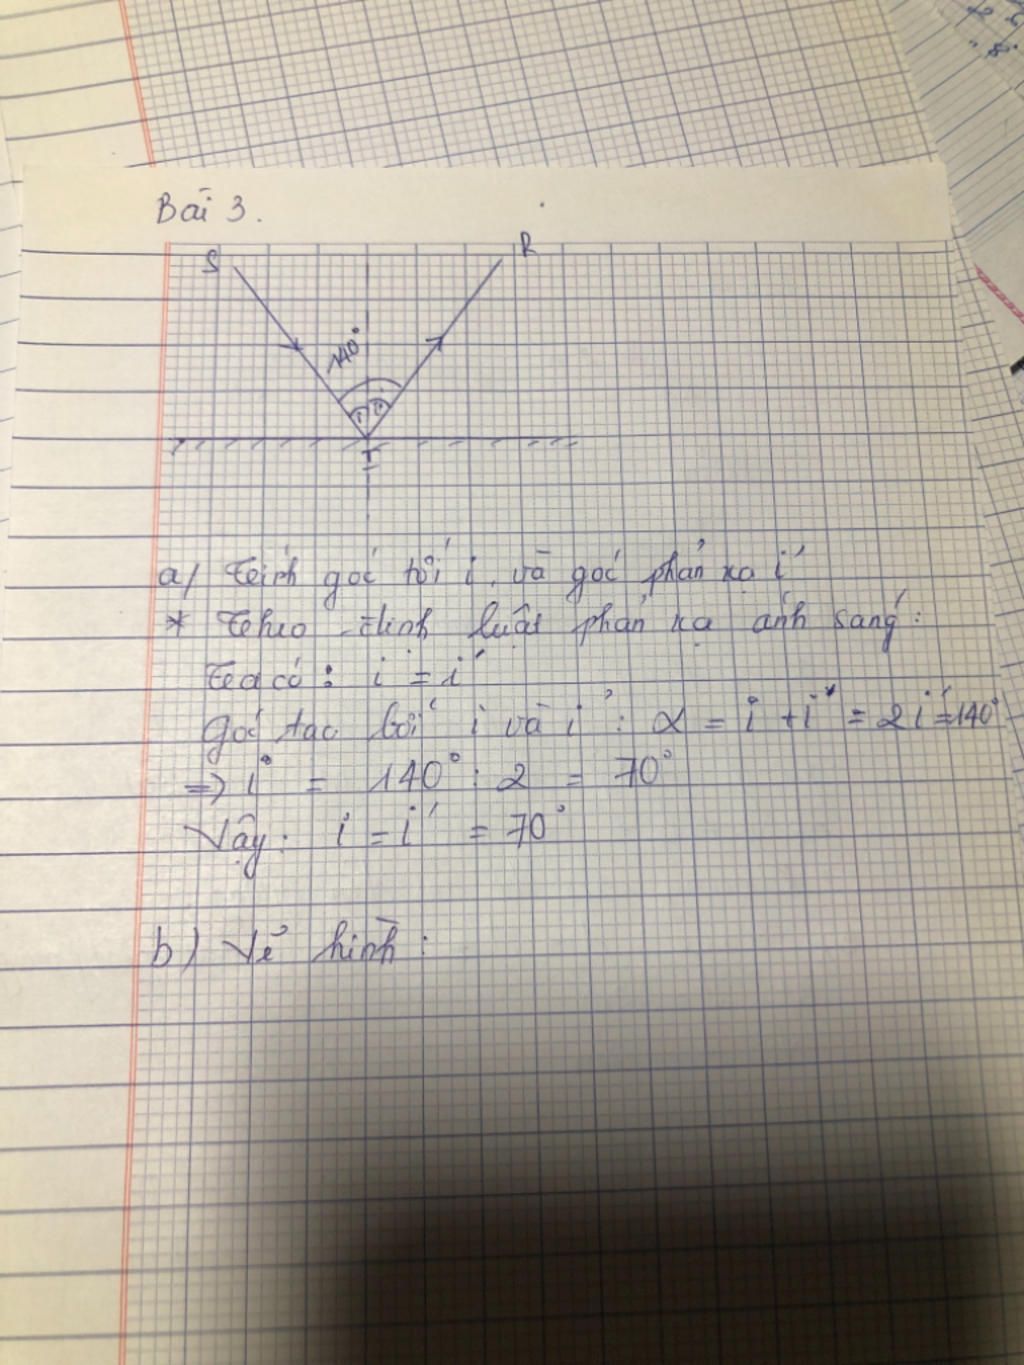 Bài 3.
S R
140°
i i'
I
a/ Tính góc tới i và góc phản xạ i'
* Theo định luật phản xạ ánh sáng:
Ta có: i = i'
Góc tạo bởi i và i': α = i + i' = 2i' = 140°
=> i° = 140° : 2 = 70°
Vậy: i = i' = 70°
b) Vẽ hình: